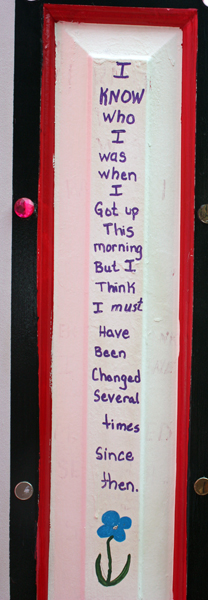 I
KNOW
who
I
was
when
I
Got up
This
morning
But I
Think
I must
Have
Been
Changed
Several
times
since
then.